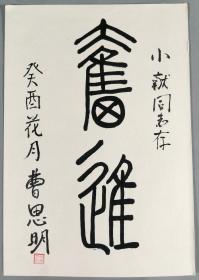 小猷同志存
奮進
癸酉花月曹思明